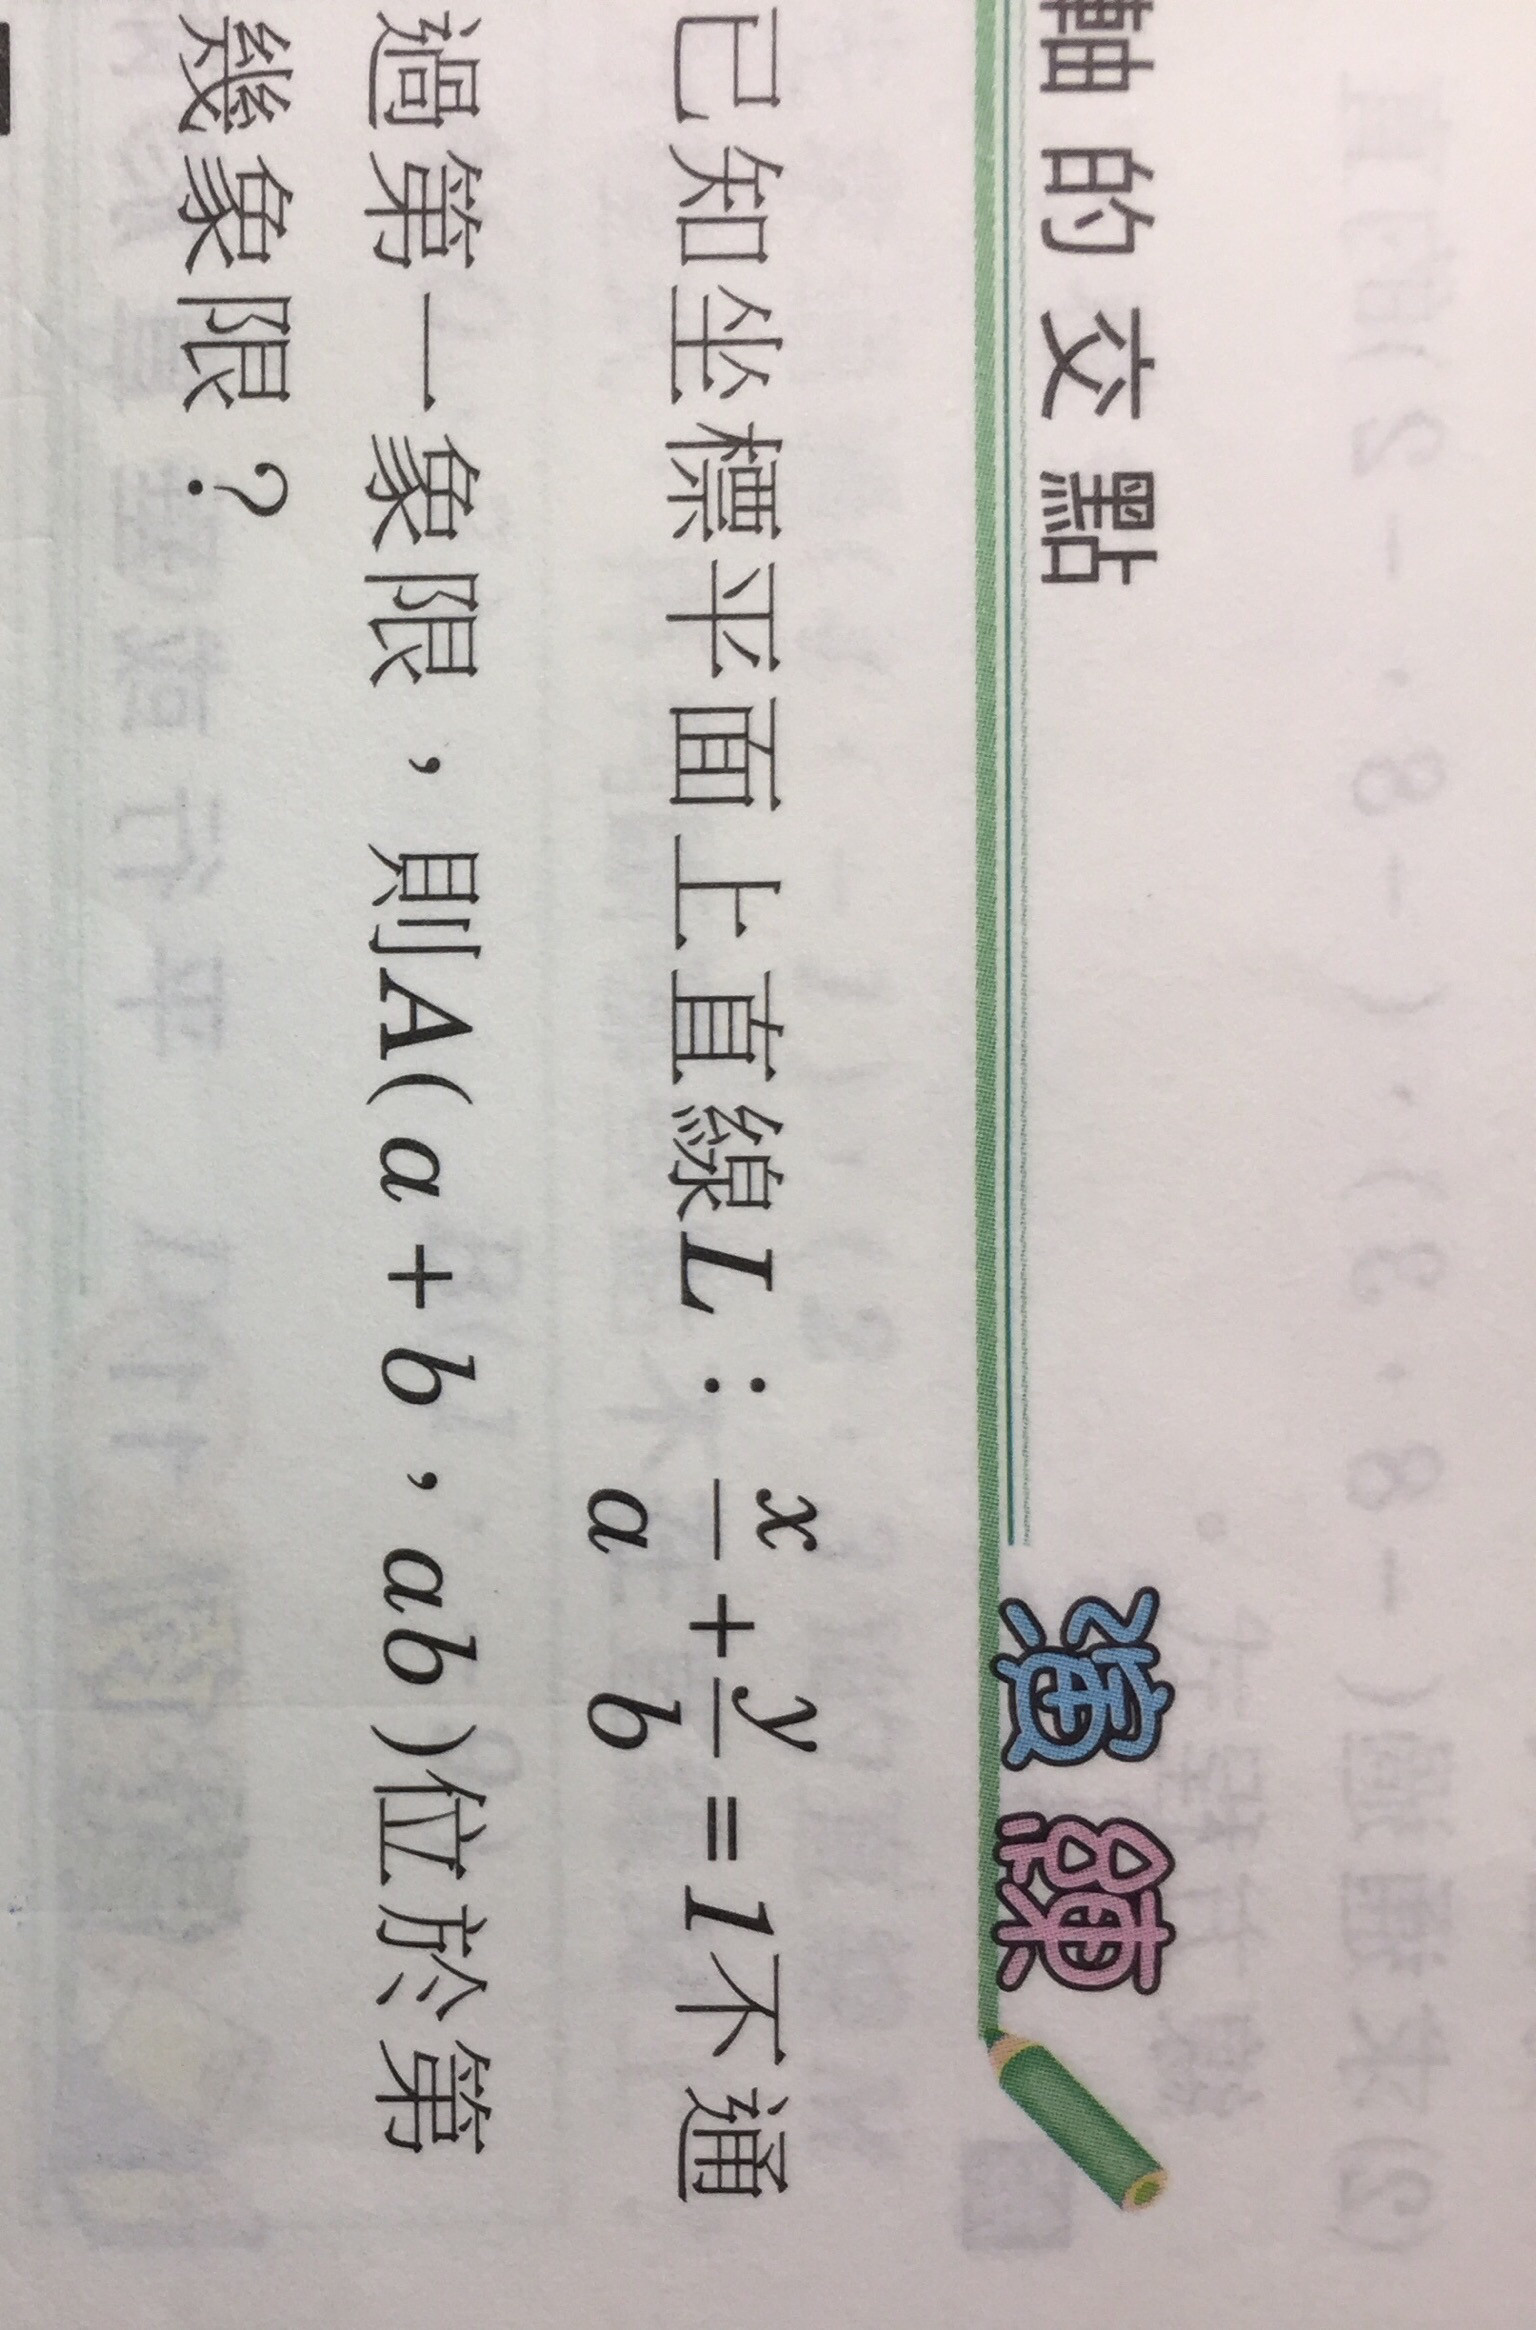 軸的交點
演練
已知坐標平面上直線L：x/a + y/b = 1不通
過第一象限，則A(a + b，ab)位於第
幾象限？